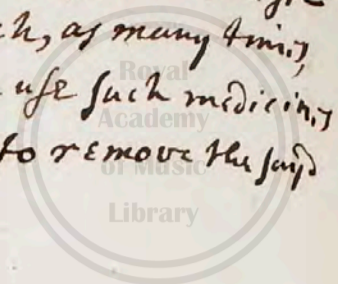 ch, as many times,
use such medicines
to remove the said
Royal
Academy
of Music
Library